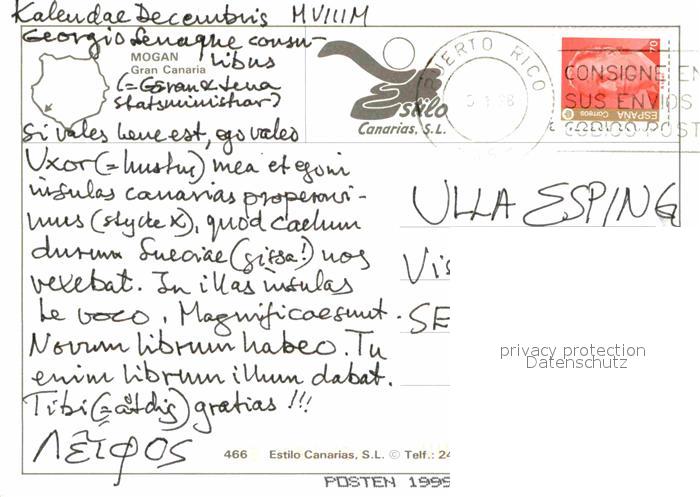 Kalendae Decembris MVIIIM
Georgio Lenaque consu-
libus
(= Göran & Lena
statsministrar)
Si vales bene est, ego valeo
Uxor (= hustru) mea et ego in
insulas canarias properavi-
mus (stycke X), quod caelum
durum Sueciae (gissa!) nos
vexebat. In illas insulas
te voco. Magnificae sunt.
Novum librum habeo. Tu
enim librum illum dabat.
Tibi (= åt dig) gratias !!!
ΛΕΪΦΟΣ
MOGAN
Gran Canaria
Estilo
Canarias, S.L.
PUERTO RICO
CONSIGNE EN
SUS ENVIOS
CODIGO POST
ESPAÑA
Correos
70
ULLA ESPING
Vis
SE
privacy protection
Datenschutz
466 Estilo Canarias, S.L. © Telf.: 24
POSTEN 1999